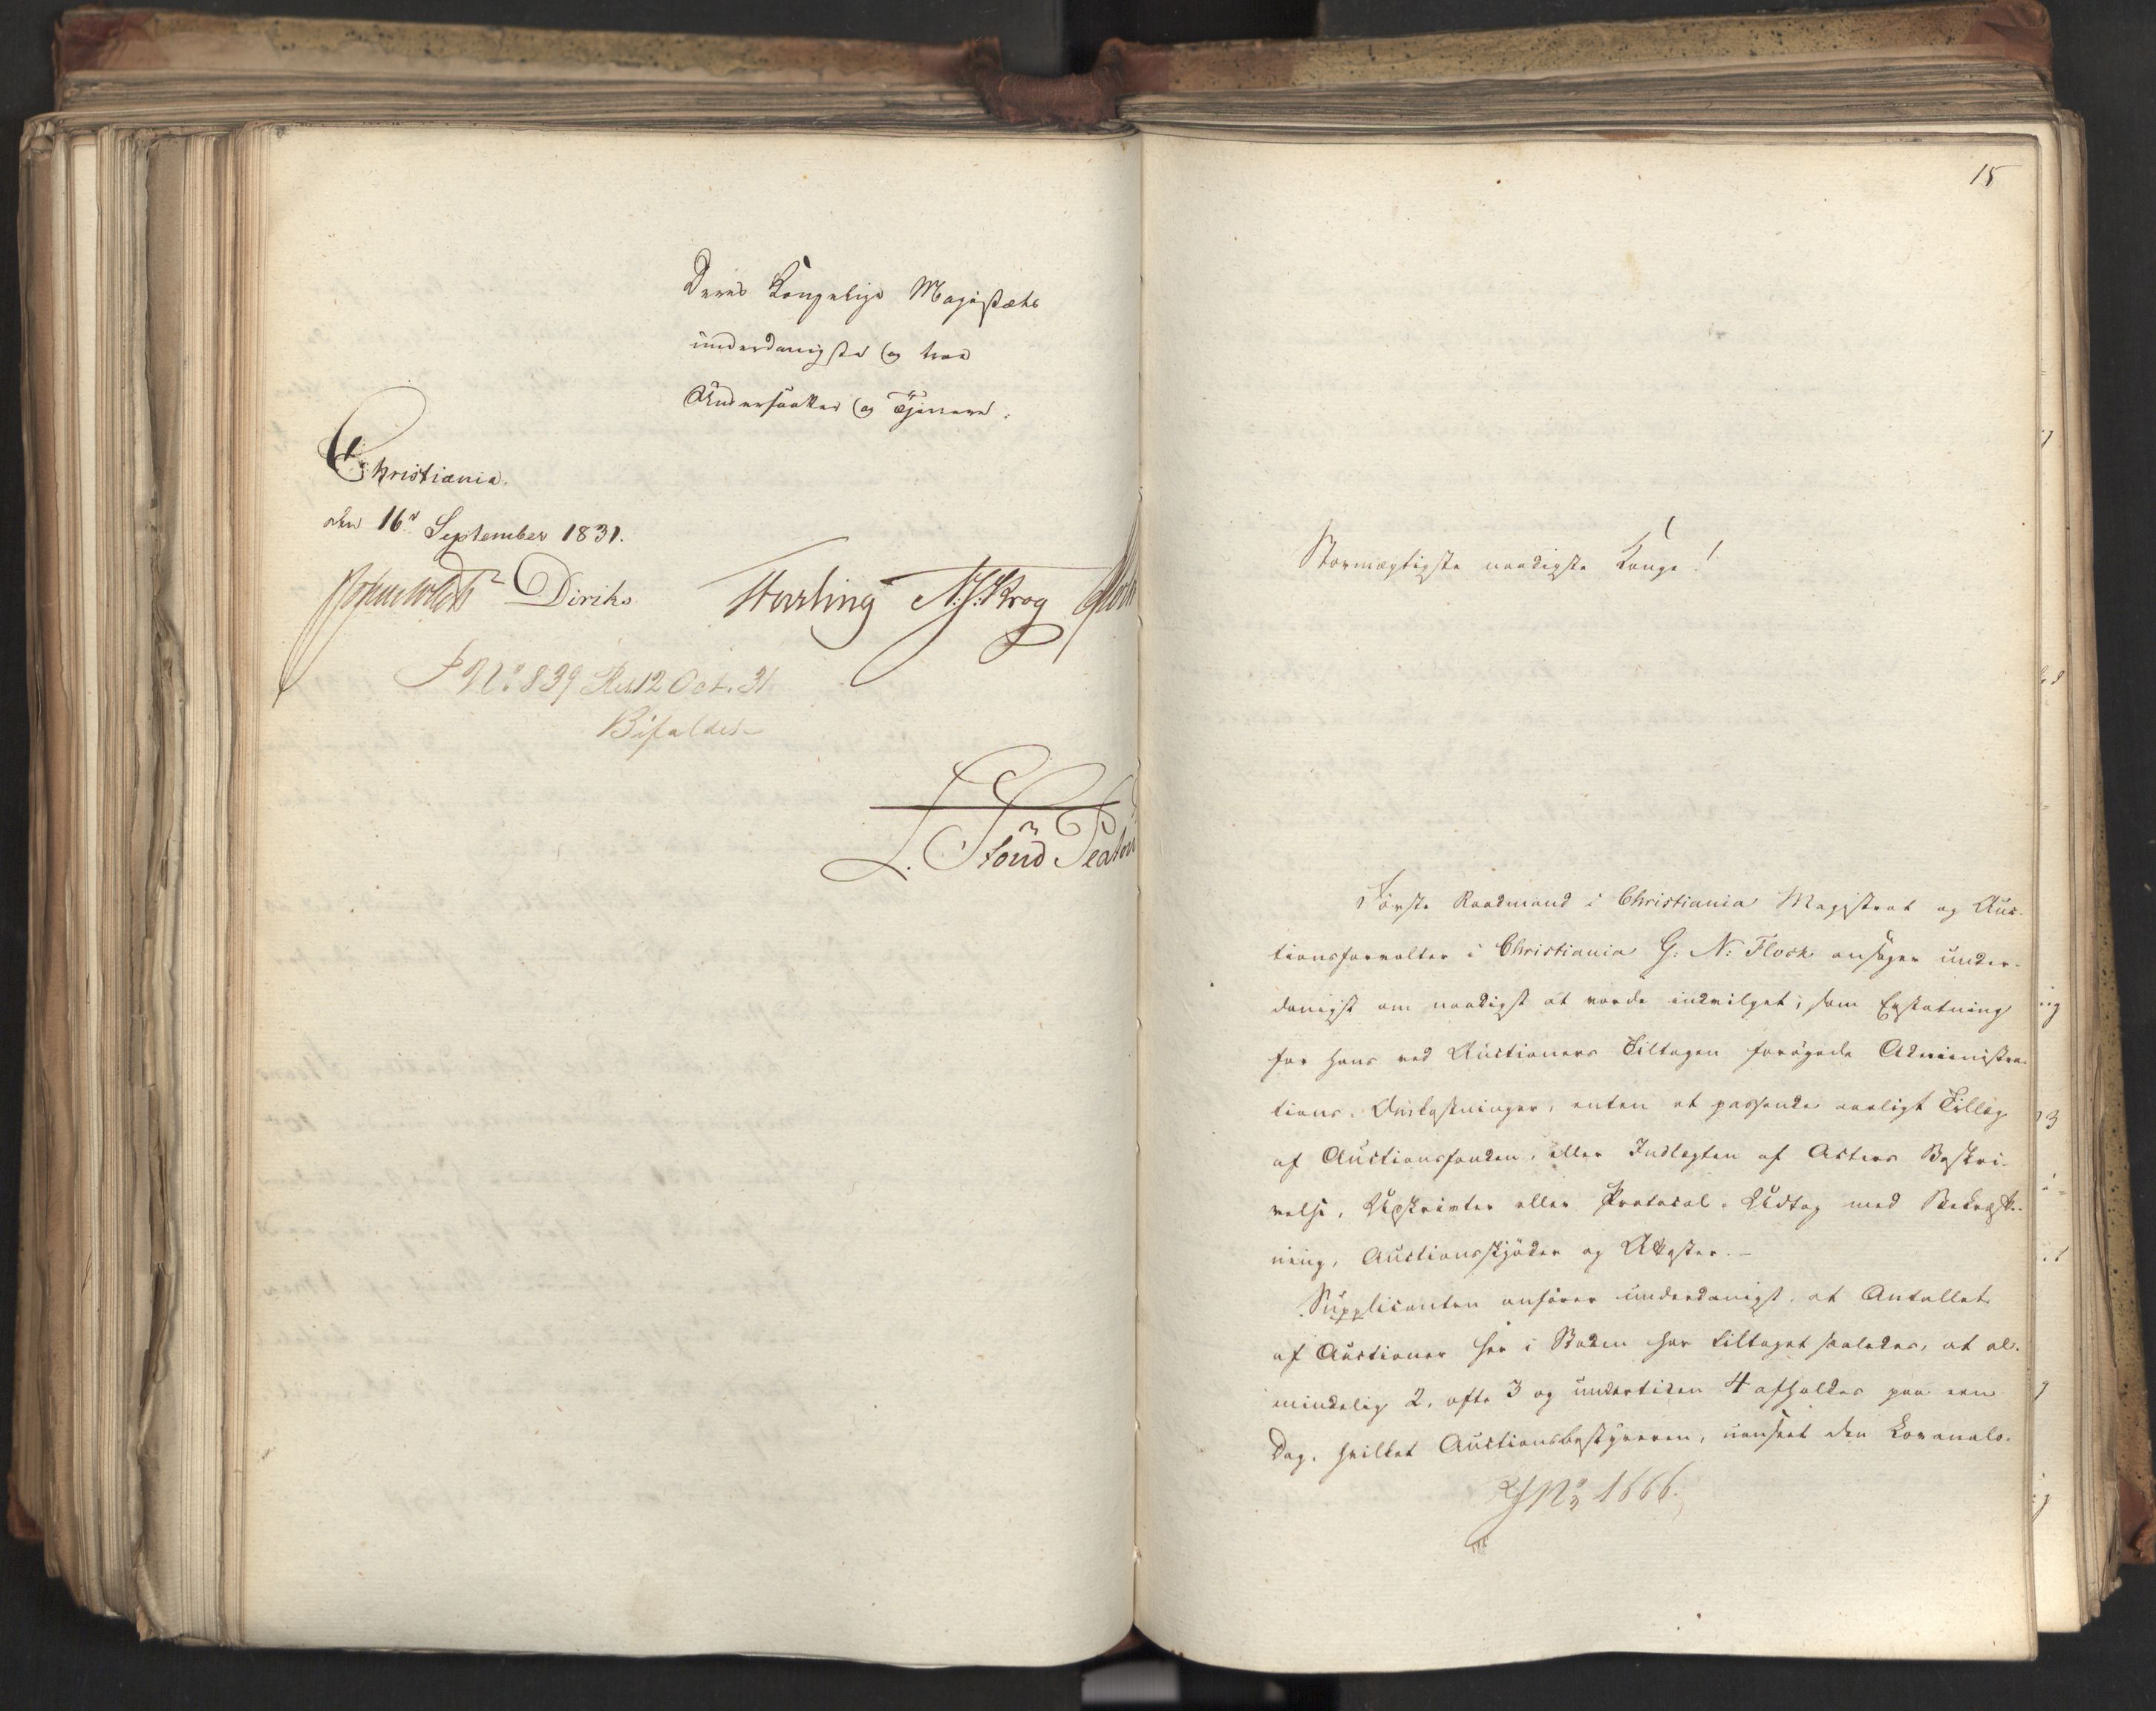 Deres Kongelige Majestæts
underdanigste og troe
Undersaatter og Tjenere.
Christiania.
den 16de September 1831.
Diriks N. J. Krog
J No 839 Res 12 Oct. 31
Bifaldes
15
Stormægtigste naadigste Konge!
Første Raadmand i Christiania Magistrat og Auc-
tionsforvalter i Christiania G. N. Flock ansøger under-
danigst om naadigst at vorde indvilget, som Erstatning
for hans ved Auctioners Tiltagen forøgede Administra-
tions-Omkostninger, enten et passende aarligt Tillæg
af Auctionsfonden, eller Indtægten af Acters Beskri-
velse, Udskrivter eller Protocol-Udtog med Bekræft-
ning, Auctionsskjøder og Attester.-
Supplicanten anfører underdanigst, at Antallet
af Auctioner her i Staden har tiltaget saaledes, at al-
mindelig 2, ofte 3 og undertiden 4 afholdes paa een
Dag, hvilket Auctionsbestyreren, uanseet den Lovanalo-
J No 1666.